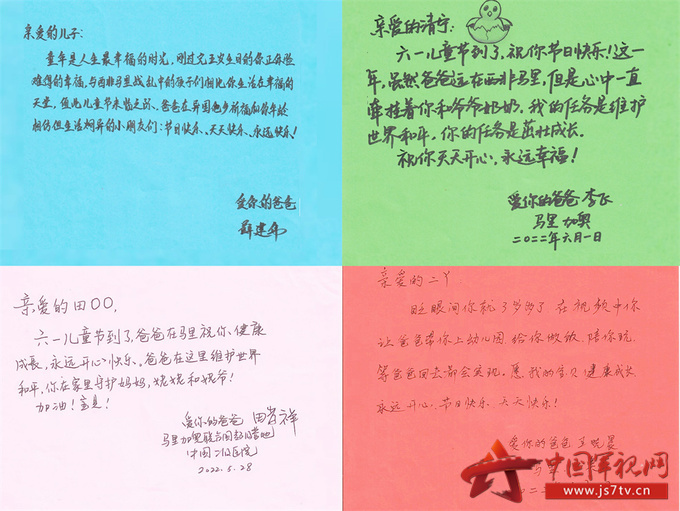 亲爱的儿子:
童年是人生最幸福的时光,刚过完五岁生日的你正体验
难得的幸福,与西非马里战乱中的孩子们相比你生活在幸福的
天堂,值此儿童节来临之际,爸爸在异国他乡祝福你
相仿但生活
的小朋友们:节日快乐、天天快乐、永远快乐!
爱你的爸爸
亲爱的清宁:
六一儿童节到了,祝你节日快乐!这一
年,虽然爸爸远在西非马里,但是心中一直
牵挂着你和爷爷奶奶,我的任务是维护
世界和平,你的任务是茁壮成长。
祝你天天开心,永远幸福!
爱你的爸爸 李飞
马里 加奥
二〇二二年六月一日
亲爱的田〇〇,
六一儿童节到了,爸爸在马里祝你健康
成长,永远开心快乐。爸爸在这里维护世界
和平,你在家里守护妈妈,姥姥和姥爷!
加油!宝贝!
爱你的爸爸 田
祥
马里加奥联合国超级营地
中国二级医院
2022.5.28
亲爱的二丫
眨眼间你就了
岁了 在视频中你
让爸爸带你上幼儿园 给你做饭 陪你玩
等爸爸回去都会实现。愿我的宝贝健康成长
永远开心 节日快乐 天天快乐!
爱你的爸爸 王
中国军视网
www.js7tv.cn